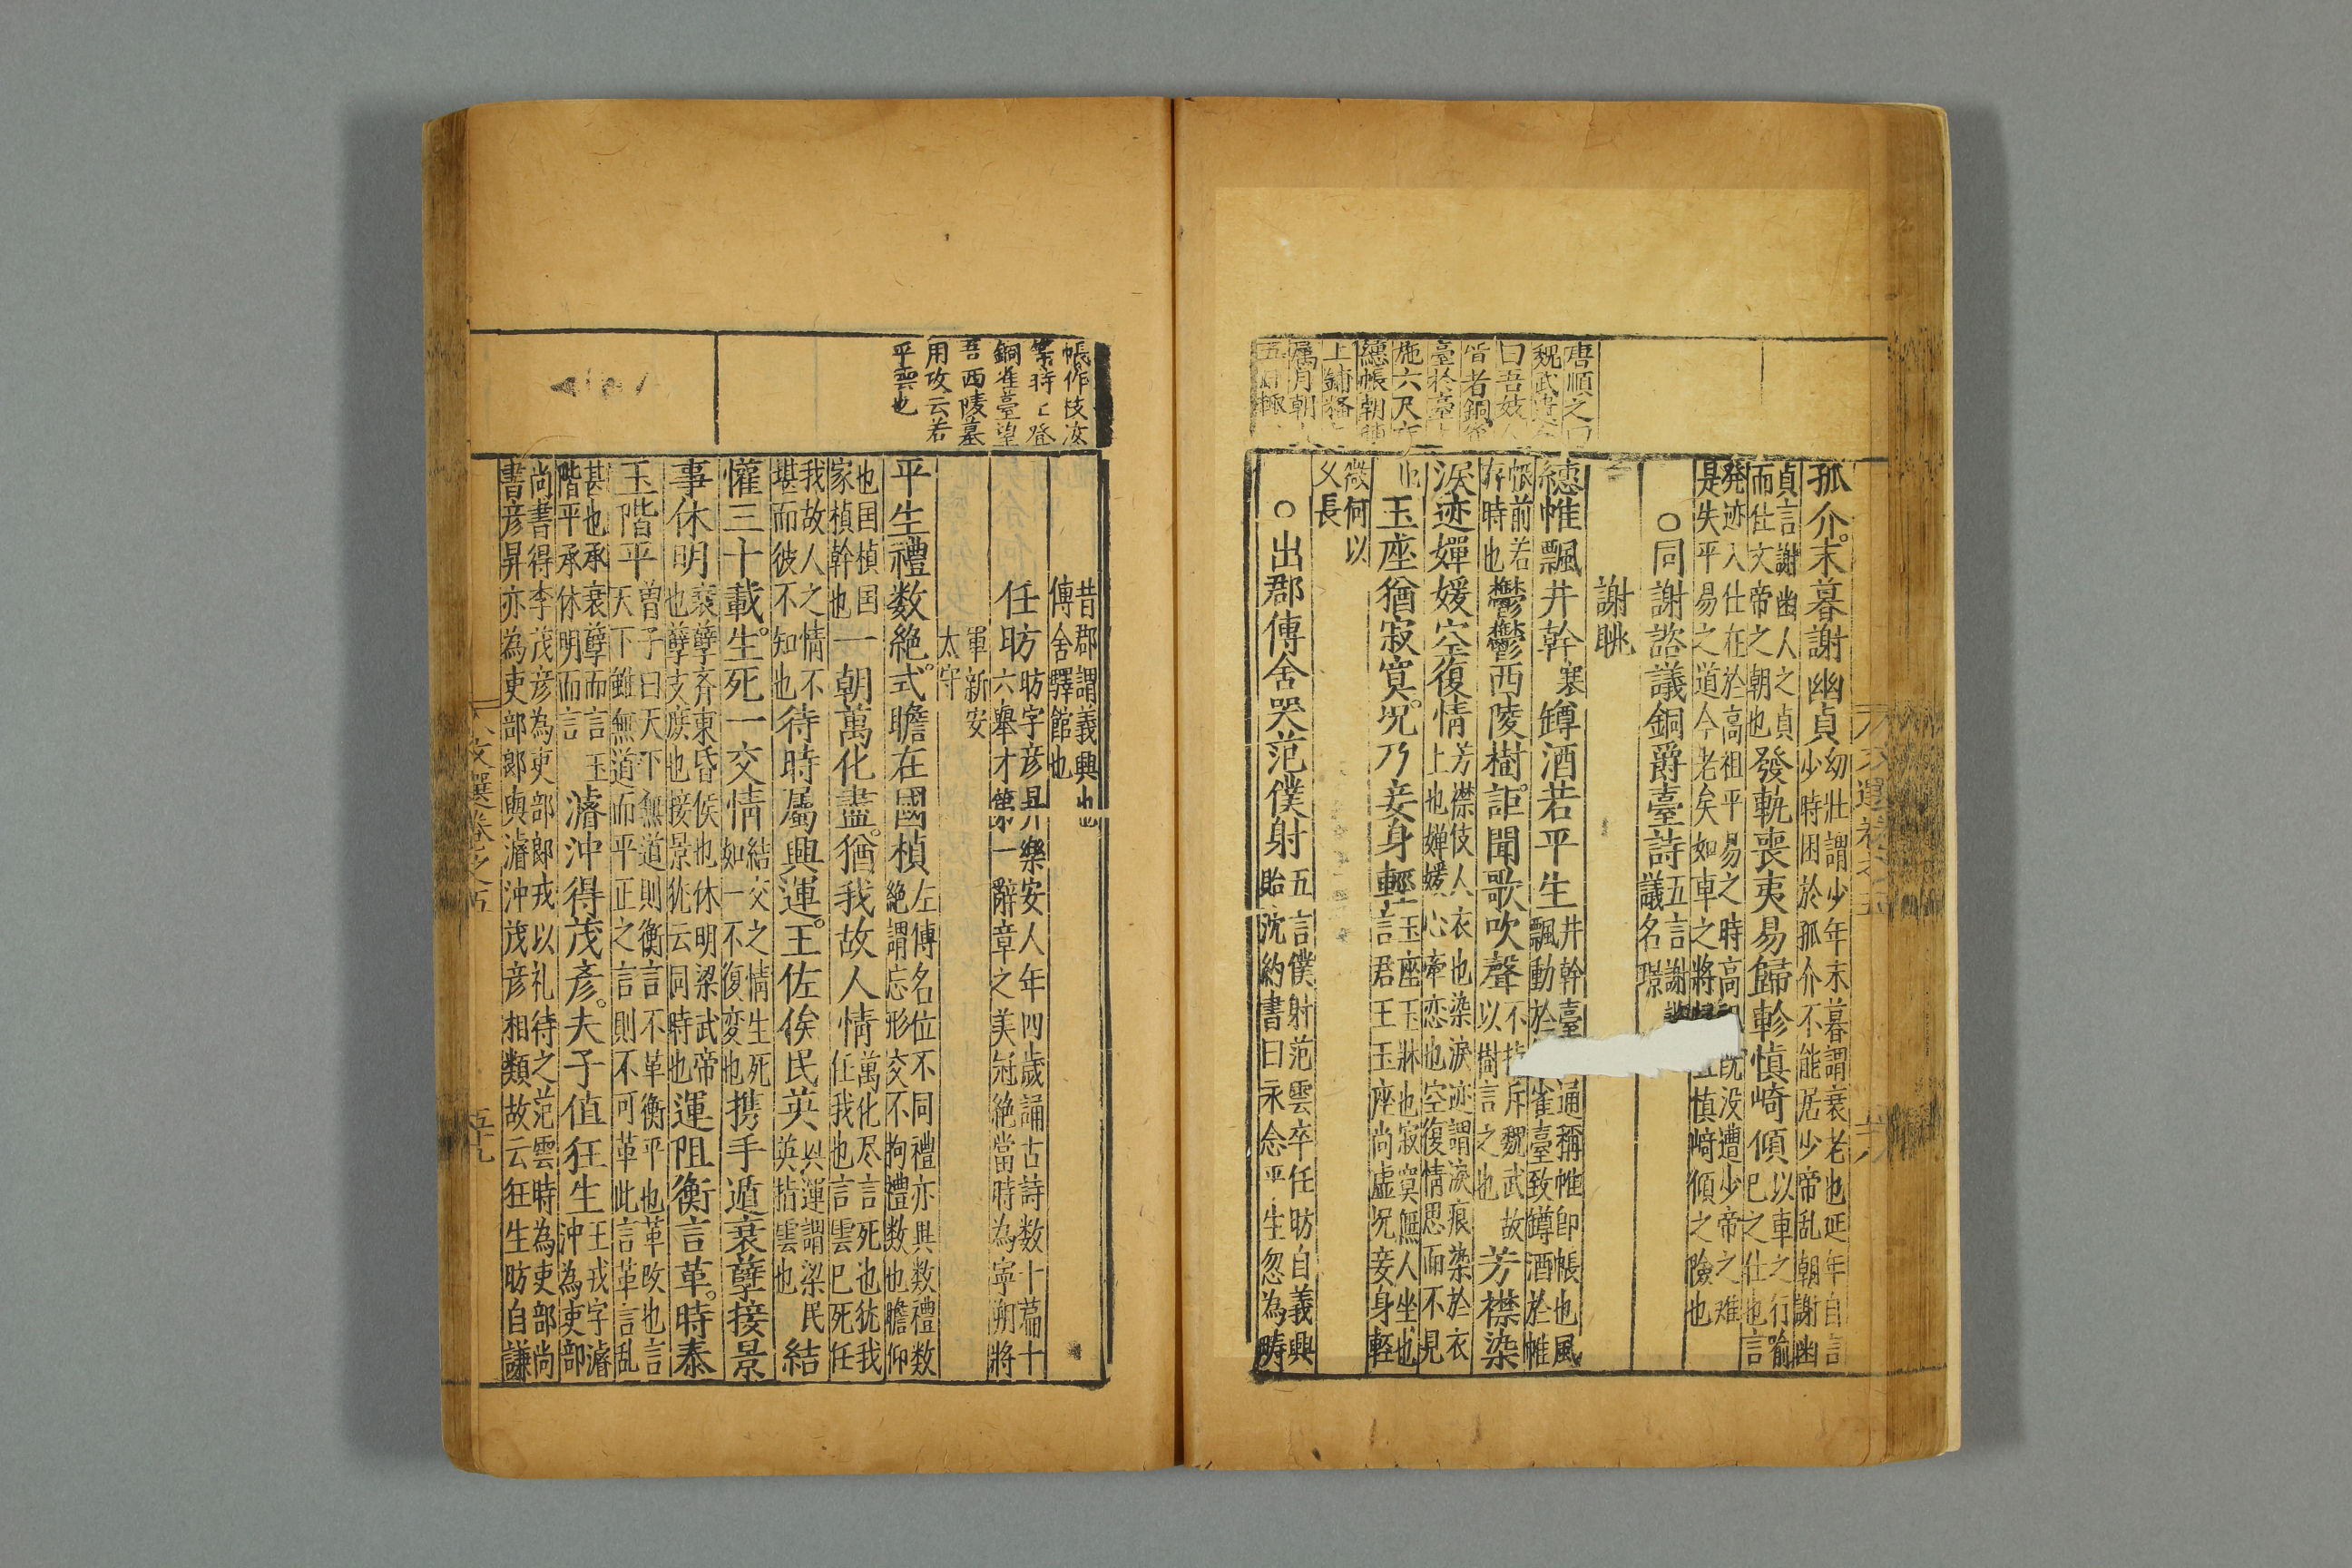 孤介末暮謝幽貞幼壯謂少年末暮謂衰老也延年自言
少時困於孤介不能居少帝乱朝謝幽
貞言謝幽人之貞
而仕文帝之朝也發軌喪夷易歸軫慎崎傾以車之行喻
已之仕也言
発迹入仕在於高祖平易之時高
既没遭少帝之难
是失平易之道今老矣如車之將
慎崎傾之險也
○同謝諮議銅爵臺詩五言謝
議名璟
謝眺
繐帷飄井幹寒鐏酒若平生井幹臺
通稱帷即帳也風
飄動於
雀臺致鐏酒於帷
帳前若
存時也鬱鬱西陵樹詎聞歌吹聲不
斥魏武故
以樹言之也芳襟染
淚迹嬋媛空復情芳襟伎人衣也染淚迹謂淚痕染於衣
上也嬋媛心牽恋也空復情思而不見
也玉座猶寂寞况乃妾身輕玉座玉牀也寂寞無人坐也
言君王玉座尚虚况妾身輕
微何以
乆長
○出郡傳舍哭范僕射五言僕射范雲卒任昉自義興
貽沈約書曰永念平生忽為疇
唐順之曰
魏武
曰吾妓
皆著銅
臺於臺
施六尺
繐帳朝
上
月朝
五
帳作伎汝
等時〻登
銅雀臺望
吾西陵墓
用攷云若
平雲也
昔郡謂義興也
傳舍驛館也
任昉昉字彦昇樂安人年四歲誦古詩数十篇十
六舉才第一辭章之美冠絶當時為寧朔將
軍新安
太守
平生禮数絶式瞻在國楨左傳名位不同禮亦異数禮数
絶謂忘形交不拘禮数也瞻仰
也囯楨囯
家楨幹也一朝萬化盡猶我故人情萬化尽言死也犹我
任我也言雲已死任
我故人之情不
堪而彼不知也待時屬興運王佐俟民英興運謂梁民
英指雲也結
懽三十載生死一交情結交之情生死
如一不復変也携手遁衰孽接景
事休明衰孽斉東昏侯也休明梁武帝
也孽支庶也接景犹云同時也運阻衡言革時泰
玉階平曽子曰天下無道則衡言不革衡平也革攺也言
天下雖無道而平正之言則不可革此言革言乱
甚也承衰孽而言玉
階平承休明而言濬沖得茂彦夫子值狂生王戎字濬
沖為吏部
尚書得李茂彦為吏部郎戎以礼待之范雲時為吏部尚
書彦昇亦為吏部郎與濬沖茂彦相類故云狂生昉自謙
文選卷之五
五十九